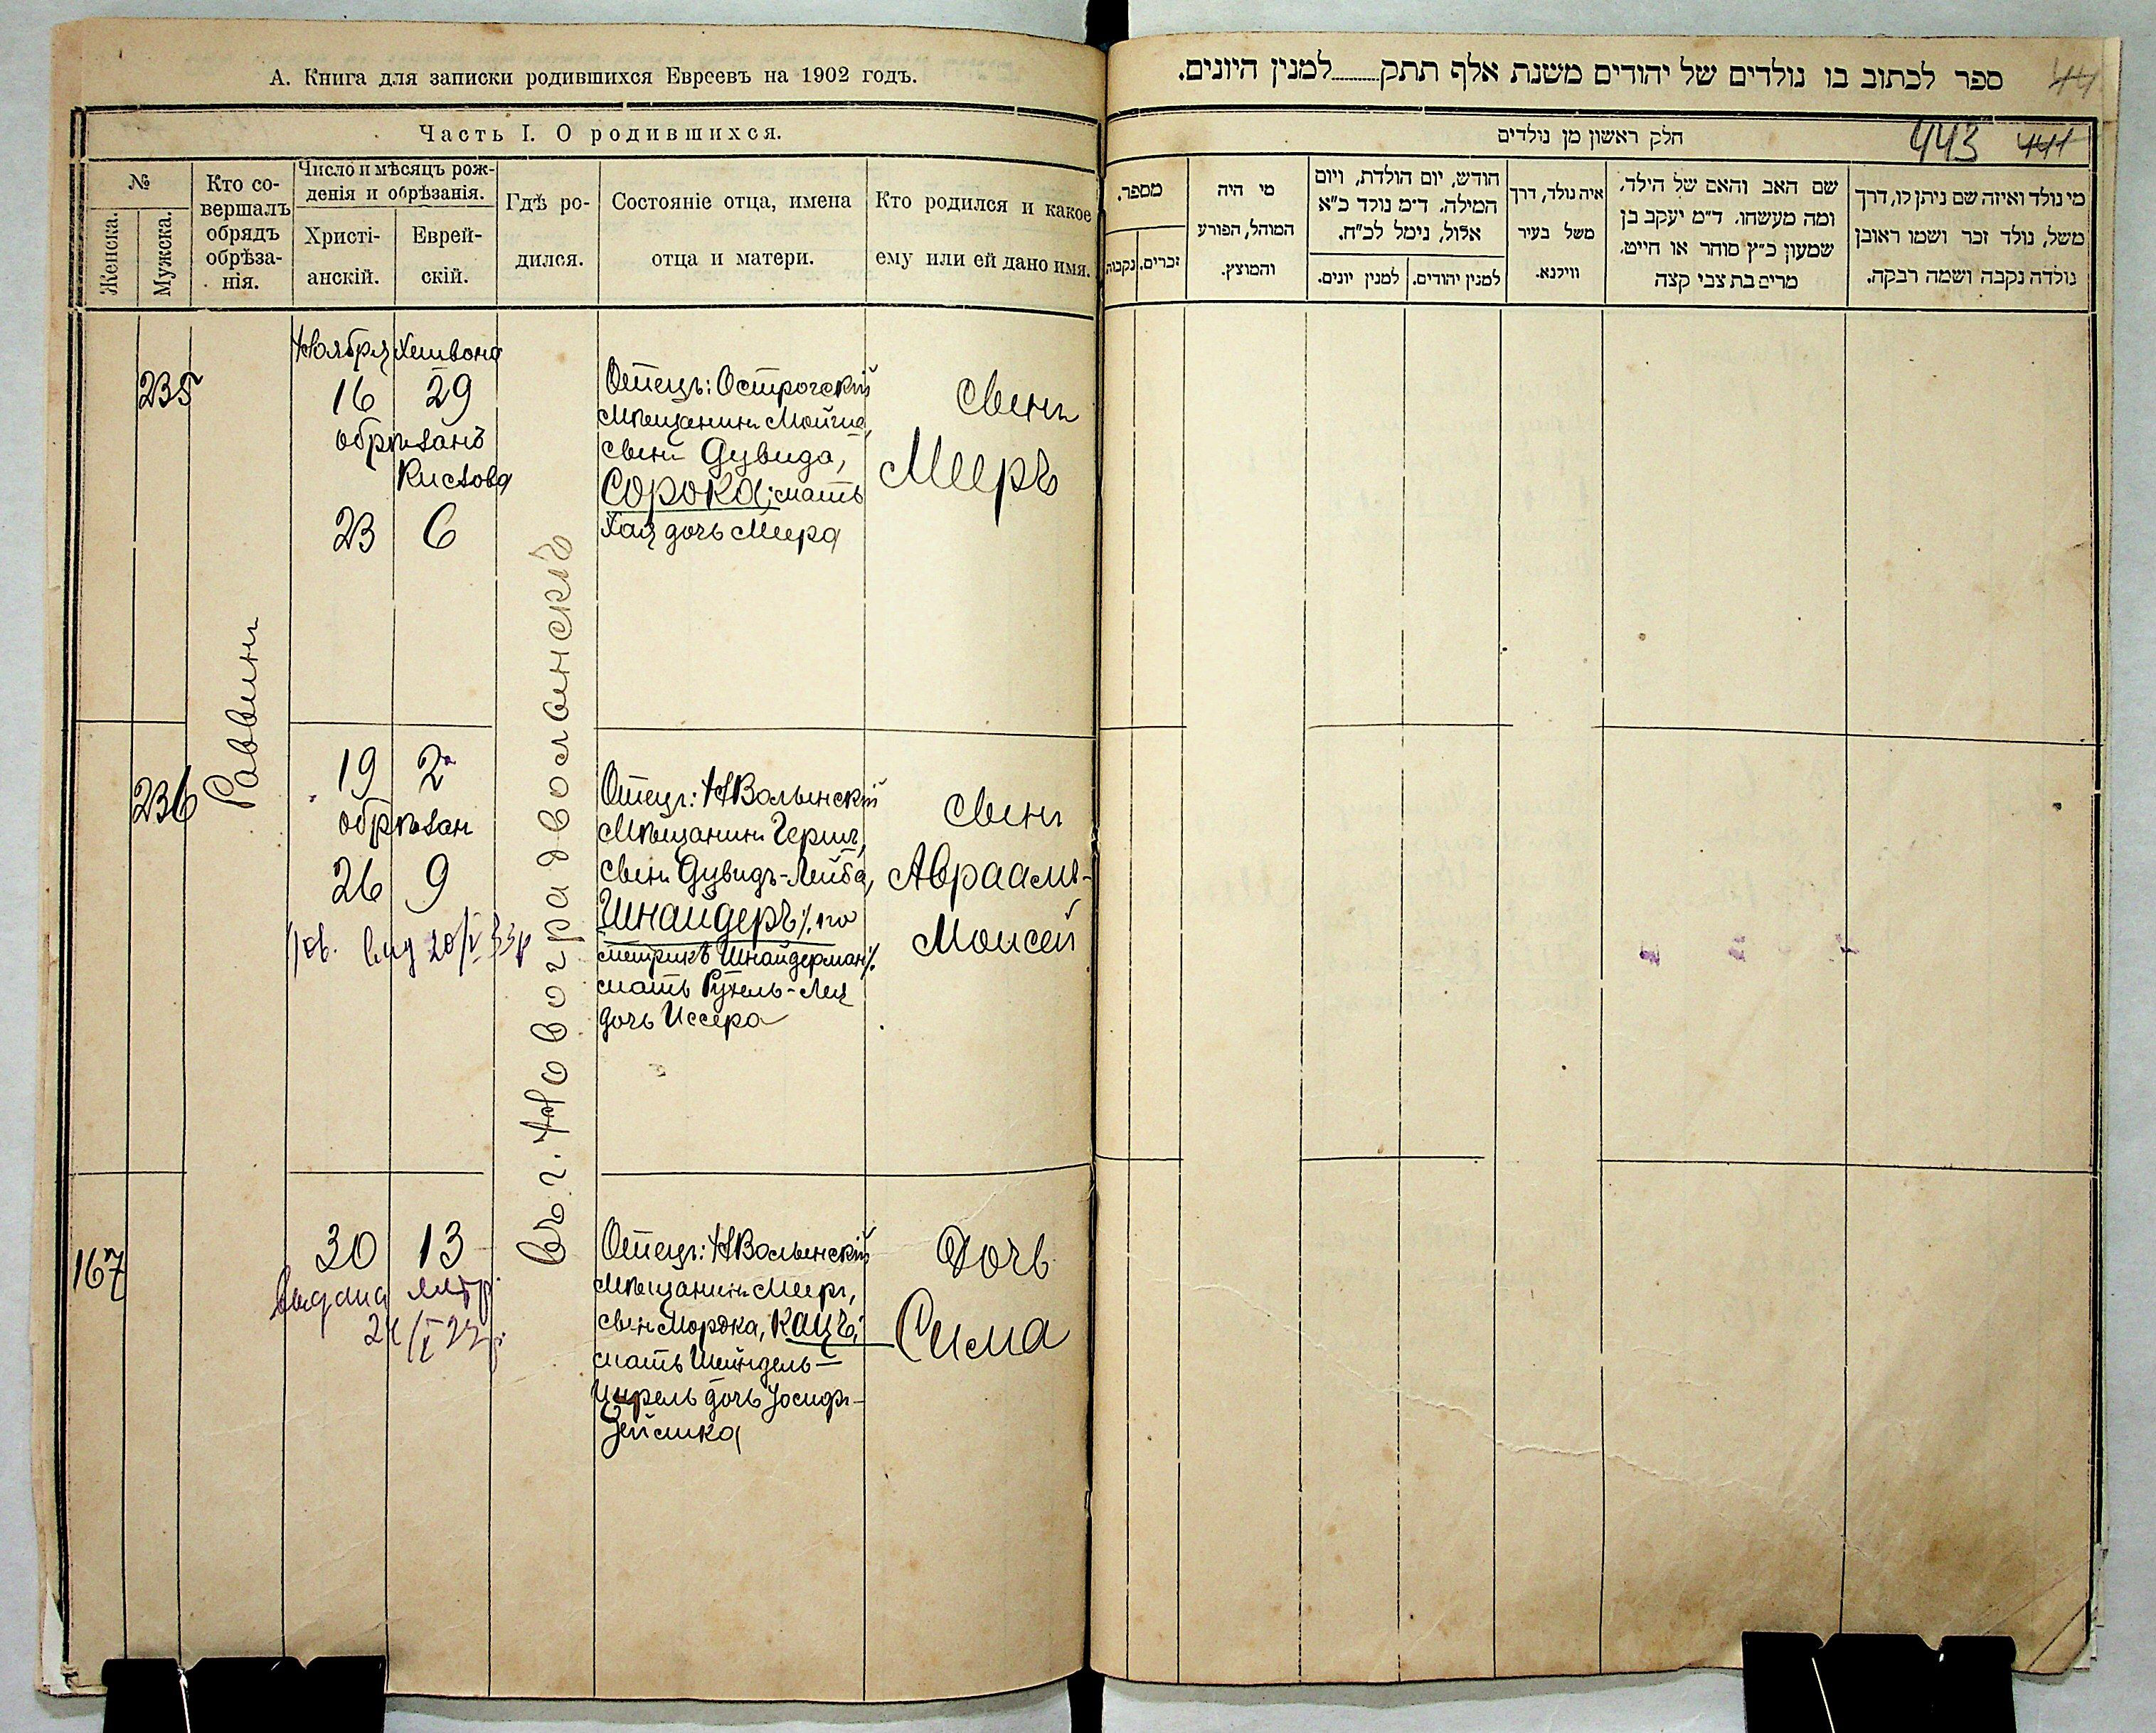 А. Книга для записки родившихся Евреевъ на 1902 годъ.
Часть I. О родившихся.
№
Женска.
Мужска.
Кто со-
вершалъ
обрядъ
обрѣза-
нія.
Число и мѣсяцъ рож-
денія и обрѣзанія.
Христі-
анскій.
Еврей-
скій.
Гдѣ ро-
дился.
Состояніе отца, имена
отца и матери.
Кто родился и какое
ему или ей дано имя.
235
Раввинъ
Ноября Хешвона
16 29
обрѣзанъ
Кислова
23 6
Въ г. Новоградволынскѣ
Отецъ: Острогскій
мѣщанинъ Мойша,
сынъ Дувида,
Сорока; мать
Хая дочь Меера
Сынъ
Мееръ
236
19 2
обрѣзан
26 9
20/V 33г
Отецъ: НВолынскій
мѣщанинъ Гершъ,
сынъ Дувидъ-Лейба,
Шнайдеръ /. по
метрикѣ Шнайдерман /.
мать Рухель-Лея
дочь Иссера
Сынъ
Авраамъ-
Моисей
167
30 13
выдана метр.
Отецъ: НВолынскій
мѣщанинъ Мееръ,
сынъ Мордка, Кацъ;
мать Шейндель-
Цирель дочь Іосифъ-
Зейлика
Дочь
Сима
ספר לכתוב בו נולדים של יהודים משנת אלף תתק........למנין היונים.
44
חלק ראשון מן נולדים
443 441
מספר.
זכרים.
נקבות
מי היה
המוהל, הפורע
והמוצץ.
חודש, יום הולדת, ויום
המילה. ד״מ נולד כ״א
אלול, נימל לכ״ח.
למנין יהודים.
למנין יונים.
איה נולד, דרך
משל בעיר
ווילנא.
שם האב והאם של הילד,
ומה מעשהו. ד״מ יעקב בן
שמעון כ״ץ סוחר או חייט.
מרים בת צבי קצה
מי נולד ואיזה שם ניתן לו, דרך
משל, נולד זכר ושמו ראובן
נולדה נקבה ושמה רבקה.